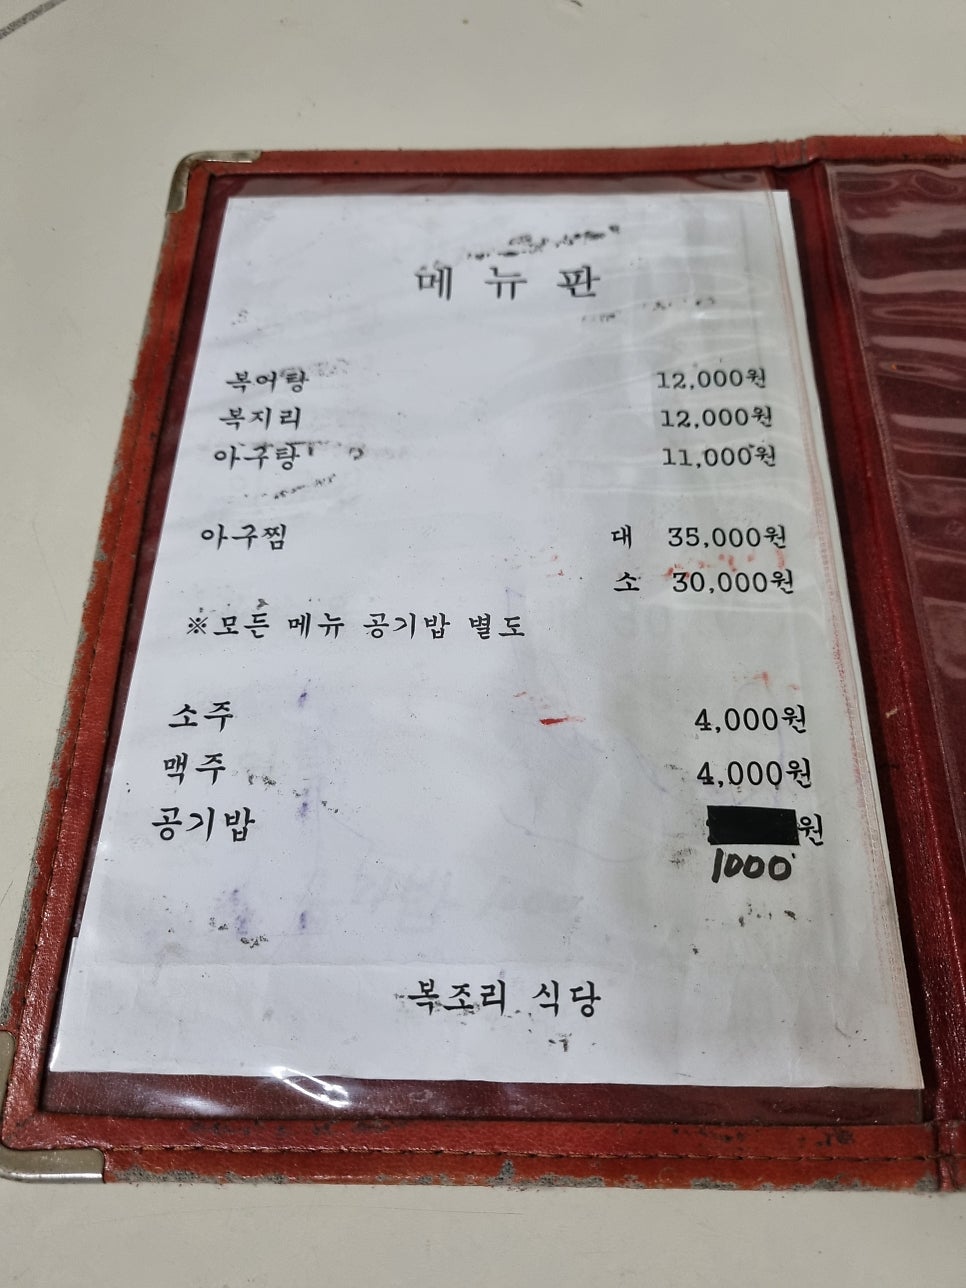 메뉴판
복어탕 12,000원
복지리 12,000원
아구탕 11,000원
아구찜 대 35,000원
소 30,000원
※모든 메뉴 공기밥 별도
소주 4,000원
맥주 4,000원
공기밥 원
1000
복조리 식당